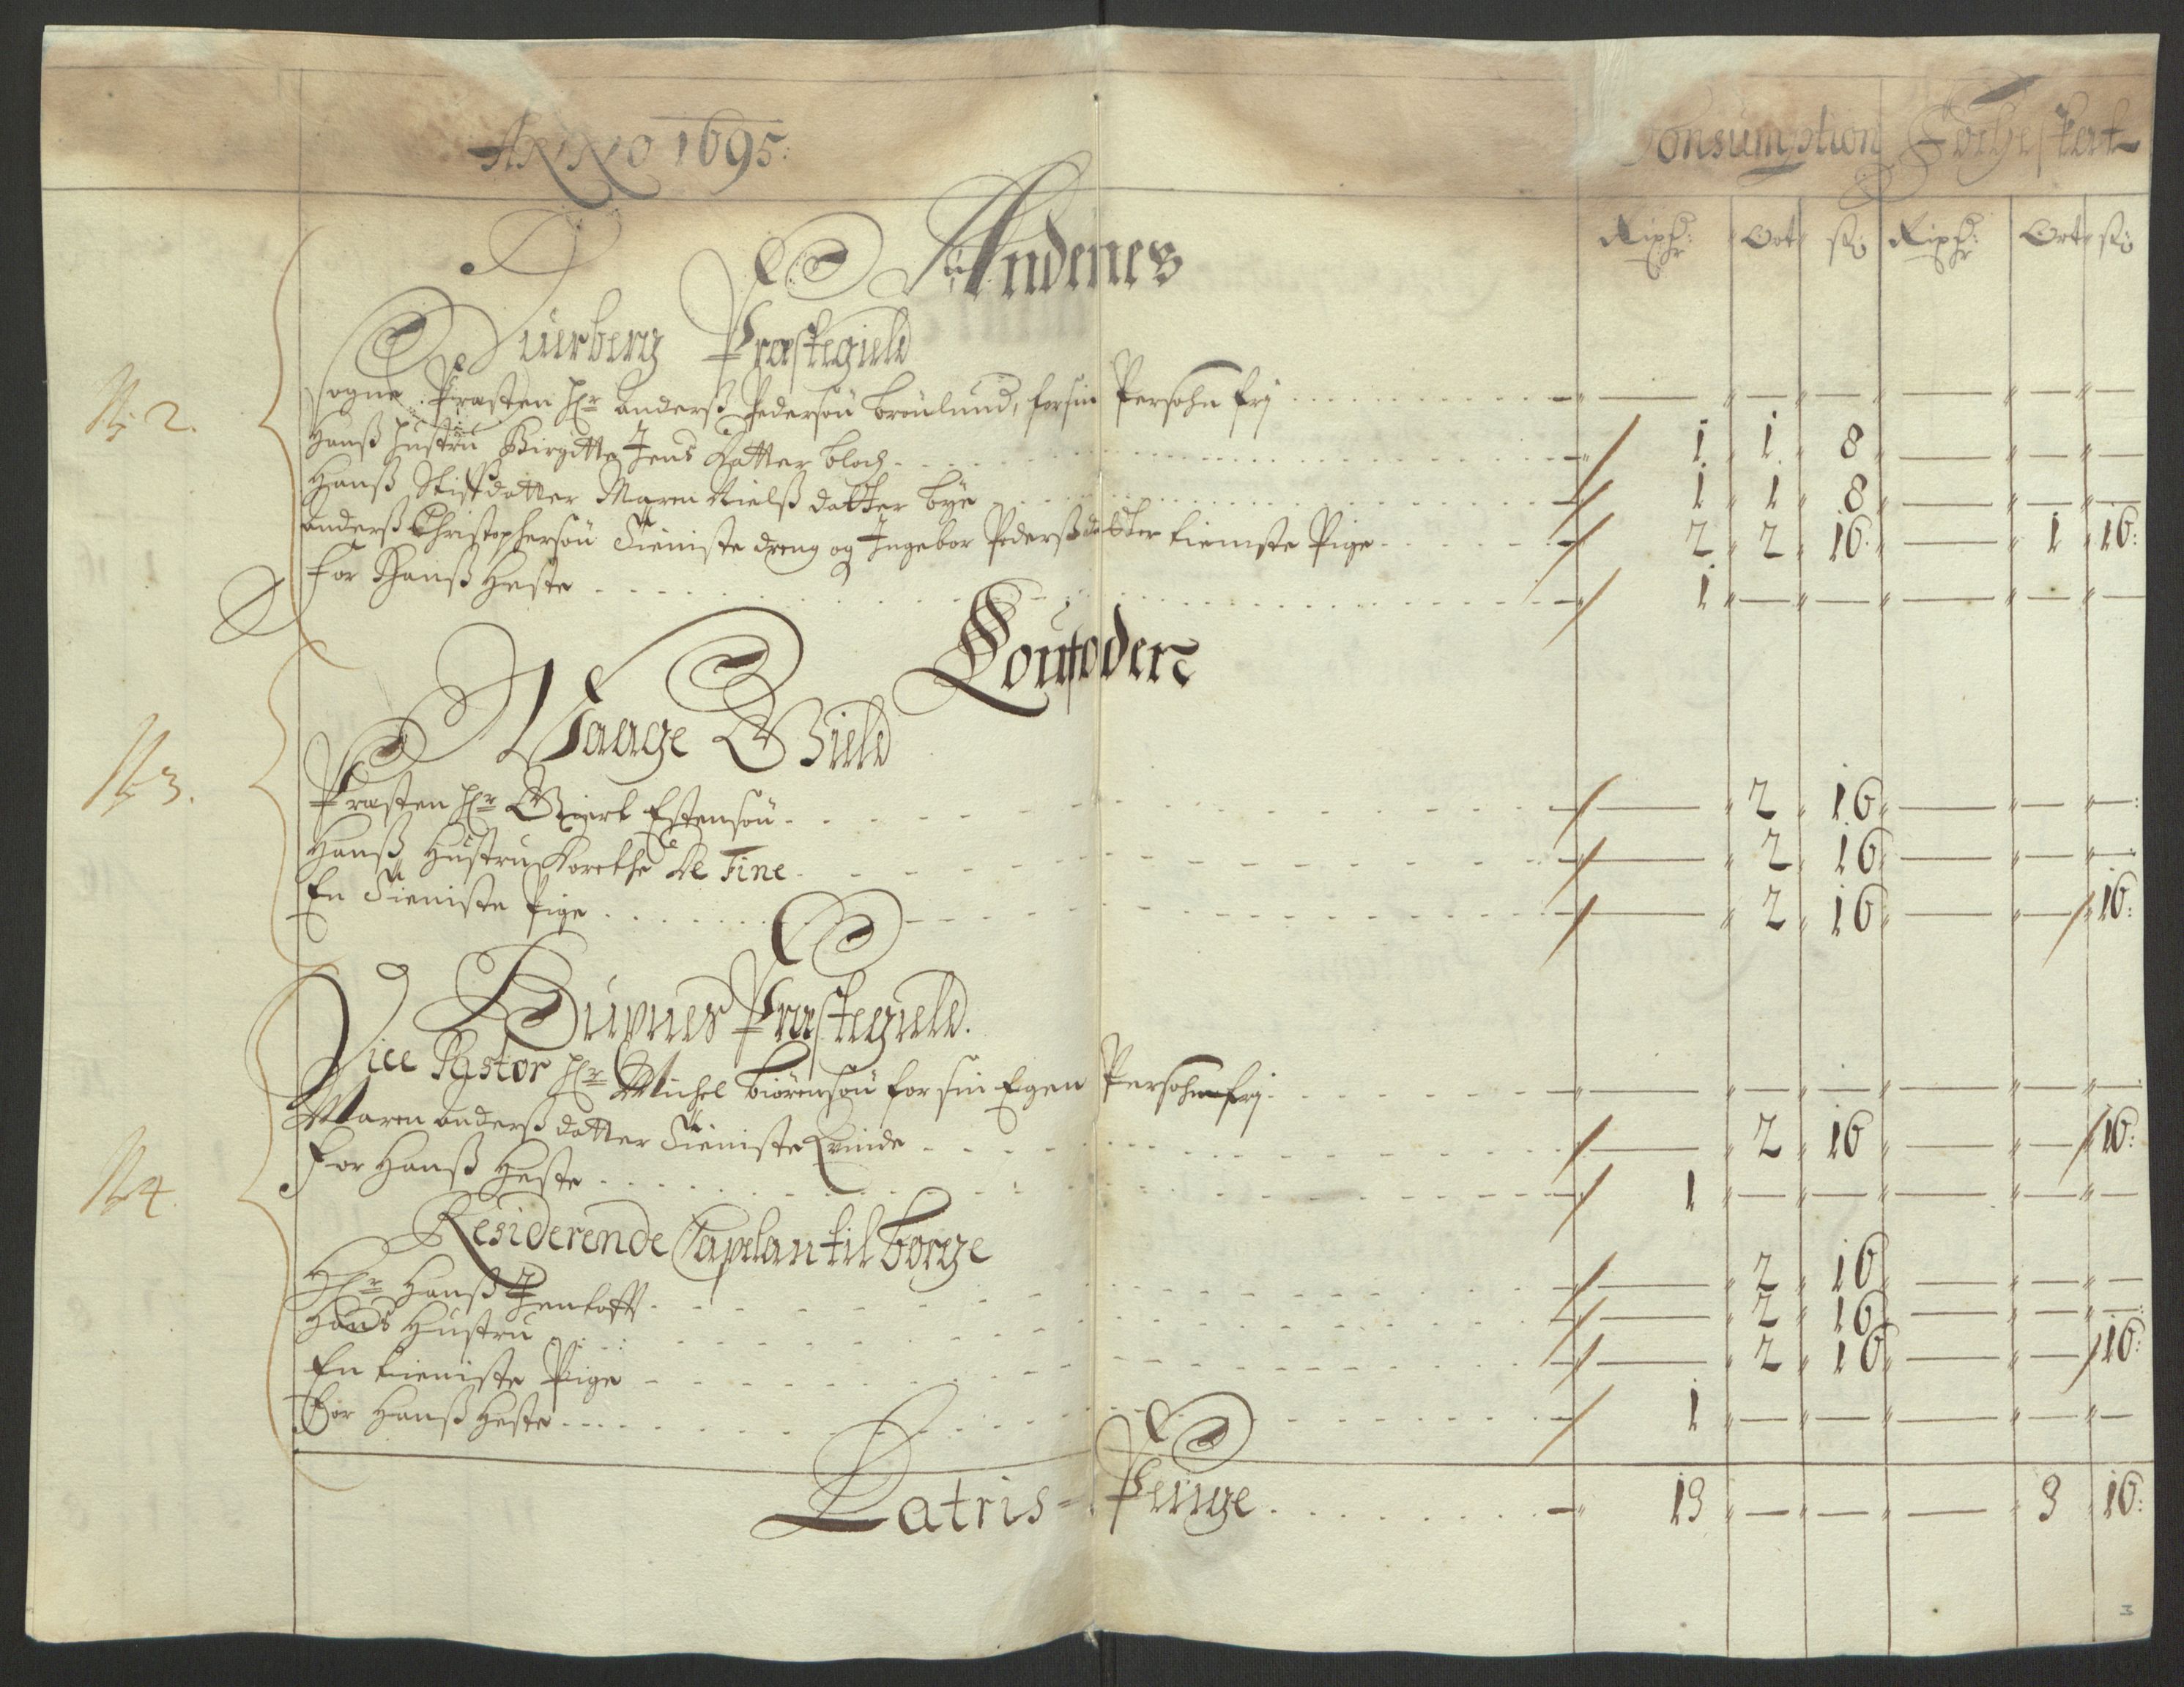 ANNO 1695:
Consumption
Andenes
Rixdr: Ort sk: Rixdr: Ort sk:
Duerberg Præstegield
N: 2. Sogne Præsten Hr Anderß Pedersøn Brønlund, for sin Persohn frj — — — — — —
Hanß Hustru Birgitte Jens Datter Bloch 1 1 8 — — —
Hanß Stifdatter Maren Nielß datter Bye 1 1 8 — — —
Anderß Christophersøn Tieniste dreng og Ingebor Pederßdatter tieniste Pige 2 2 16 — 1 16:
for Hanß Heste 1 — — — — —
Loufoden
Vaage Gield
N: 3. Præsten Hr Giert Estensøn — 2 16 — — —
Hanß Hustru Dorethe de Fine — 2 16 — — —
En Tieniste Pige — 2 16 — — 16:
Buxnes Præstegield.
Vice Pastor Hr Michel Biørensøn for sin Egen Persohn frj — — — — — —
Maren Anderß datter Tieniste Qvinde — 2 16 — — 16:
N: 4. For Hanß Heste 1 — — — — —
Residerende Capelan til Borge
Hr Hanß Jentoft — 2 16 — — —
Hans Hustru — 2 16 — — —
En tieniste Pige — 2 16 — — 16:
For Hanß Heste 1 — — — — —
Latris = Penge 13 — — — 3 16:
3